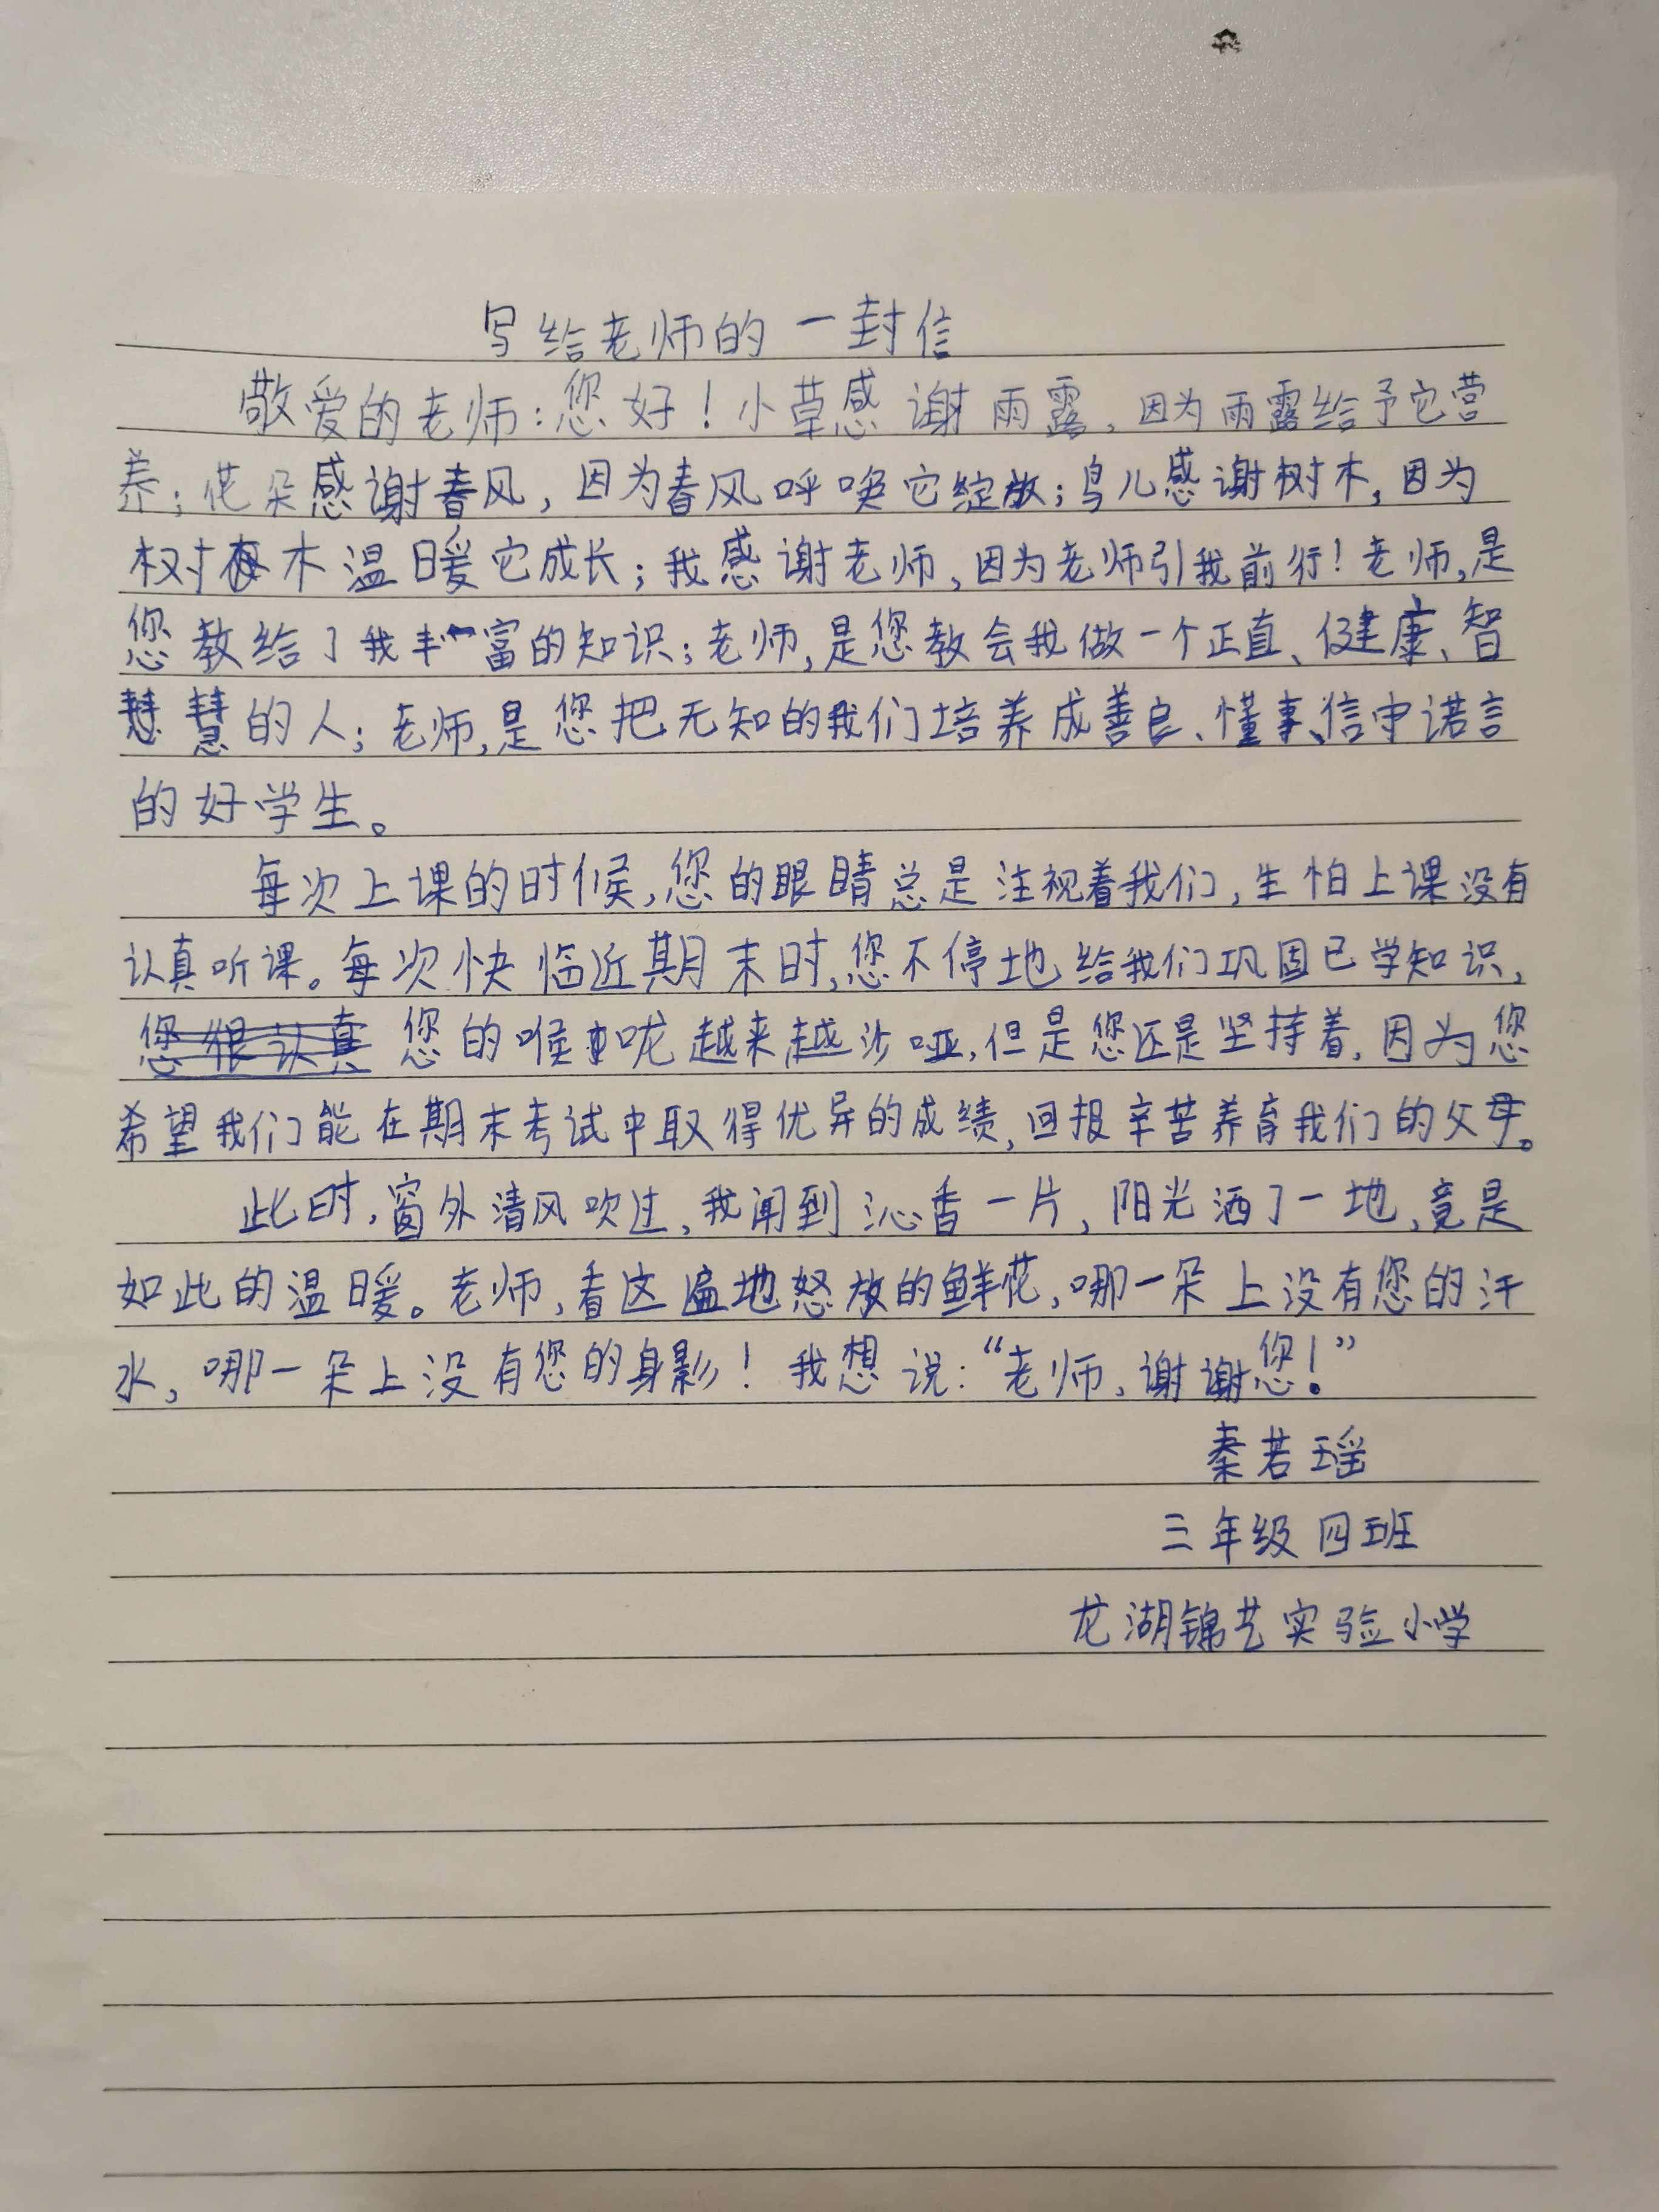 写给老师的一封信
敬爱的老师:您好!小草感谢雨露,因为雨露给予它营
养;花朵感谢春风,因为春风呼唤它绽放;鸟儿感谢树木,因为
树木温暖它成长;我感谢老师,因为老师引我前行!老师,是
您教给了我丰富的知识;老师,是您教会我做一个正直、健康、智
慧的人;老师,是您把无知的我们培养成善良、懂事、信守诺言
的好学生。
每次上课的时候,您的眼睛总是注视着我们,生怕上课没有
认真听课。每次快临近期末时,您不停地给我们巩固已学知识,
您的喉咙越来越沙哑,但是您还是坚持着,因为您
希望我们能在期末考试中取得优异的成绩,回报辛苦养育我们的父母。
此时,窗外清风吹过,我闻到沁香一片,阳光洒了一地,竟是
如此的温暖。老师,看这遍地怒放的鲜花,哪一朵上没有您的汗
水,哪一朵上没有您的身影!我想说:“老师,谢谢您!”
秦若瑶
三年级四班
龙湖锦艺实验小学